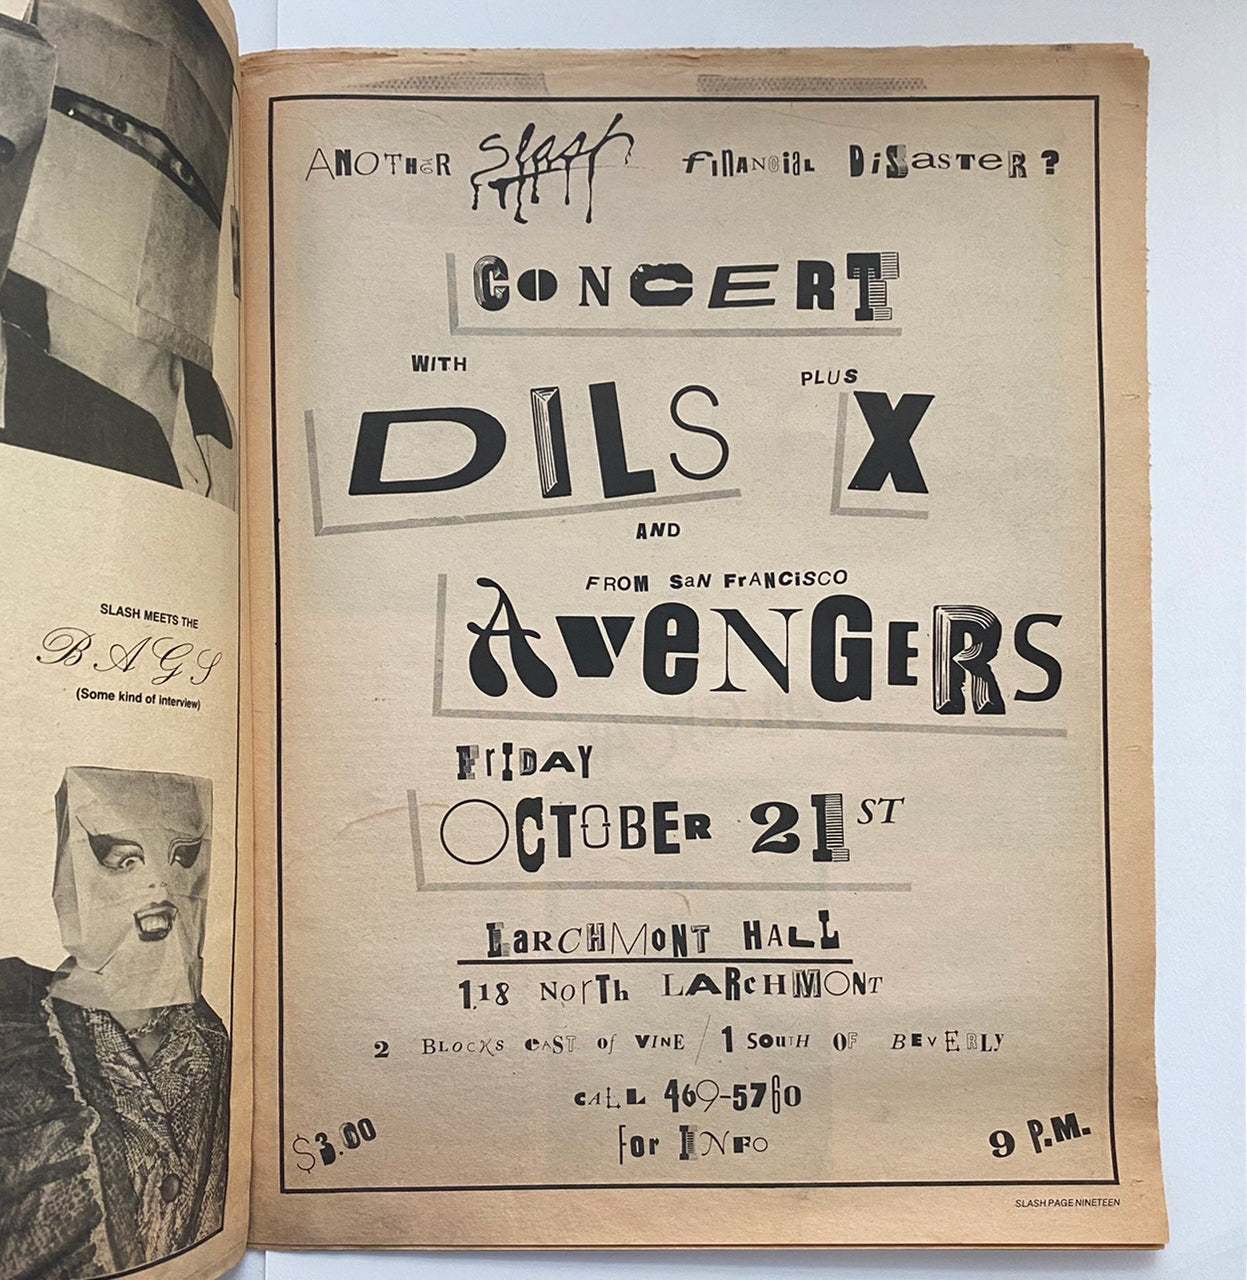 SLASH MEETS THE
BAGS
(Some kind of interview)
ANOTHER slash FINANCIAL DISASTER?
CONCERT
WITH
DILS
PLUS
X
AND
FROM SAN FRANCISCO
AVENGERS
FRIDAY
OCTOBER 21ST
LARCHMONT HALL
118 NORTH LARCHMONT
2 BLOCKS EAST of VINE / 1 SOUTH OF BEVERLY
CALL 469-5760
for INFO
$3.00
9 P.M.
SLASH PAGE NINETEEN